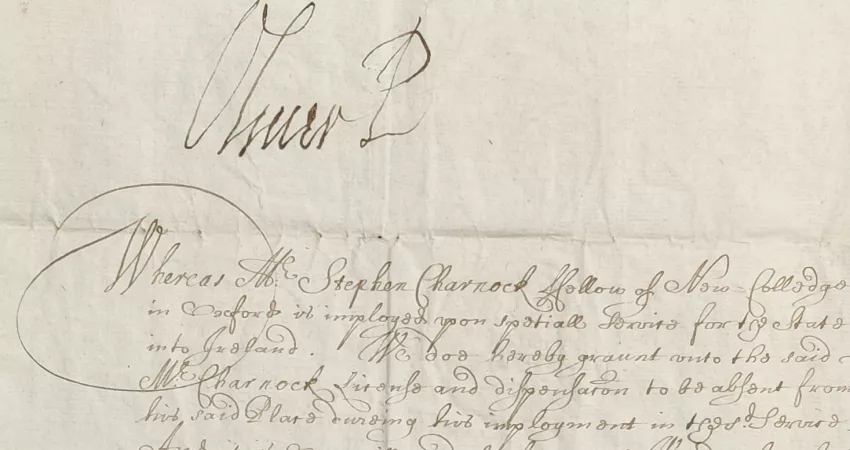 Oliver P
Whereas Mr. Stephen Charnock ffellow of New-Colledge
in Oxford is imployed upon spetiall Service for the State
into Ireland. We doe hereby graunt unto the said
Mr. Charnock License and dispensacon to be absent from
his said Place dureing his imployment in the sd. Service